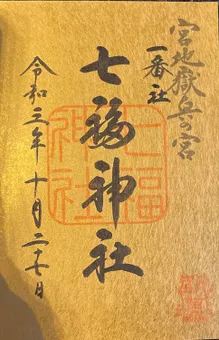 宮地嶽奥の宮
一番社
七福神社
令和三年十月二十七日
七福神社